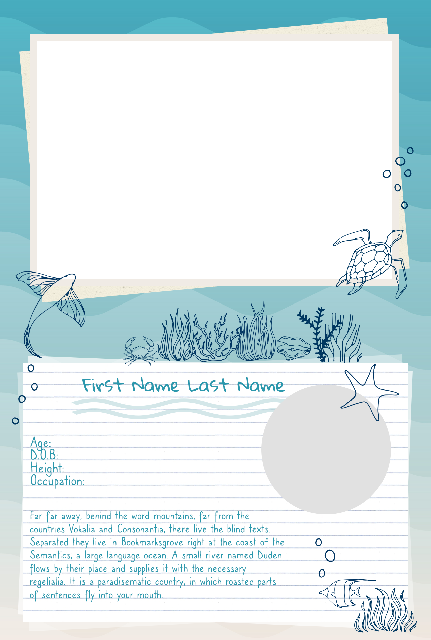 First Name Last Name
Age:
D.O.B:
Height:
Occupation:
Far far away, behind the word mountains, far from the
countries Vokalia and Consonantia, there live the blind texts.
Separated they live in Bookmarksgrove right at the coast of the
Semantics, a large language ocean. A small river named Duden
flows by their place and supplies it with the necessary
regelialia. It is a paradisematic country, in which roasted parts
of sentences fly into your mouth.